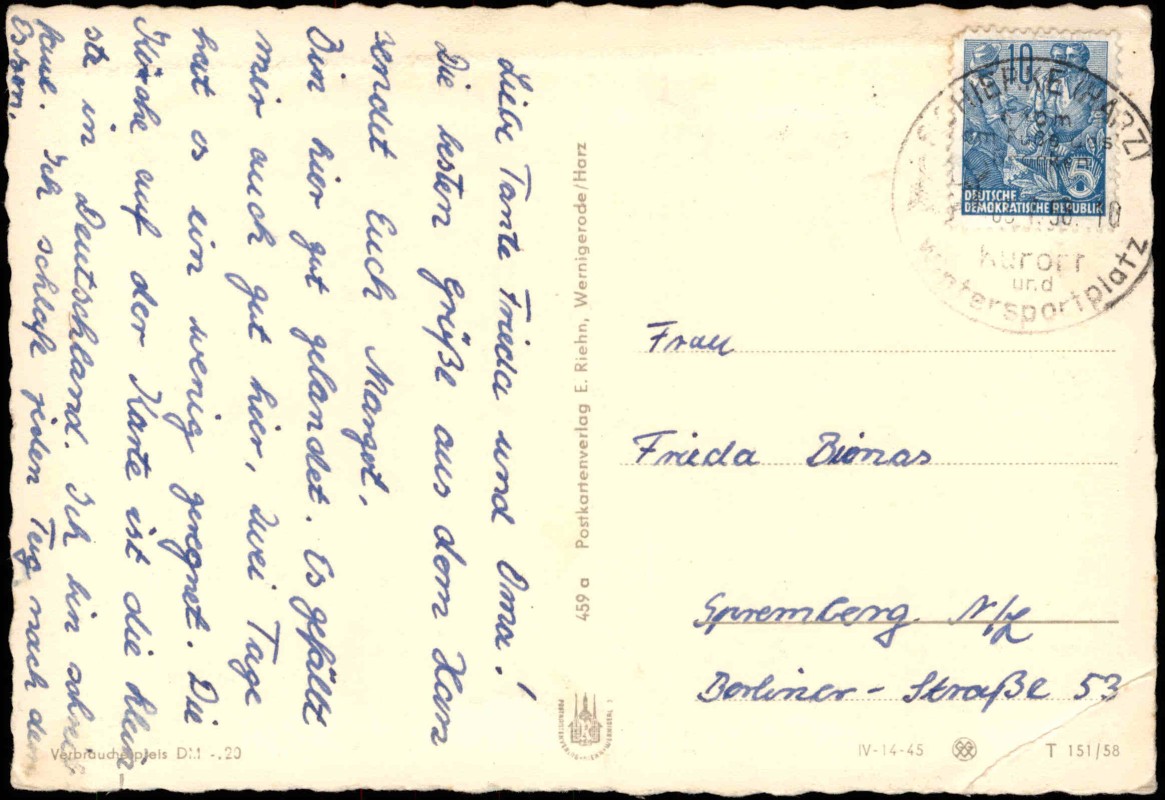 Liebe Tante Frieda und Oma!
Die besten Grüße aus dem Harz
sendet Euch Margot.
Bin hier gut gelandet. Es gefällt
mir auch gut hier, zwei Tage
hat es ein wenig geregnet. Die
Kirche auf der Karte ist die klein-
ste in Deutschland. Ich bin schon
Ich schlafe jeden Tag nach dem
Essen.
Verbraucherpreis DM -.20
459 a Postkartenverlag E. Riehn, Wernigerode/Harz
10
DEUTSCHE
DEMOKRATISCHE REPUBLIK
5
SCHIERKE (HARZ)
Kurort
und
Wintersportplatz
Frau
Frieda Bionas
Spremberg N/L
Berliner-Straße 53
IV-14-45
T 151/58